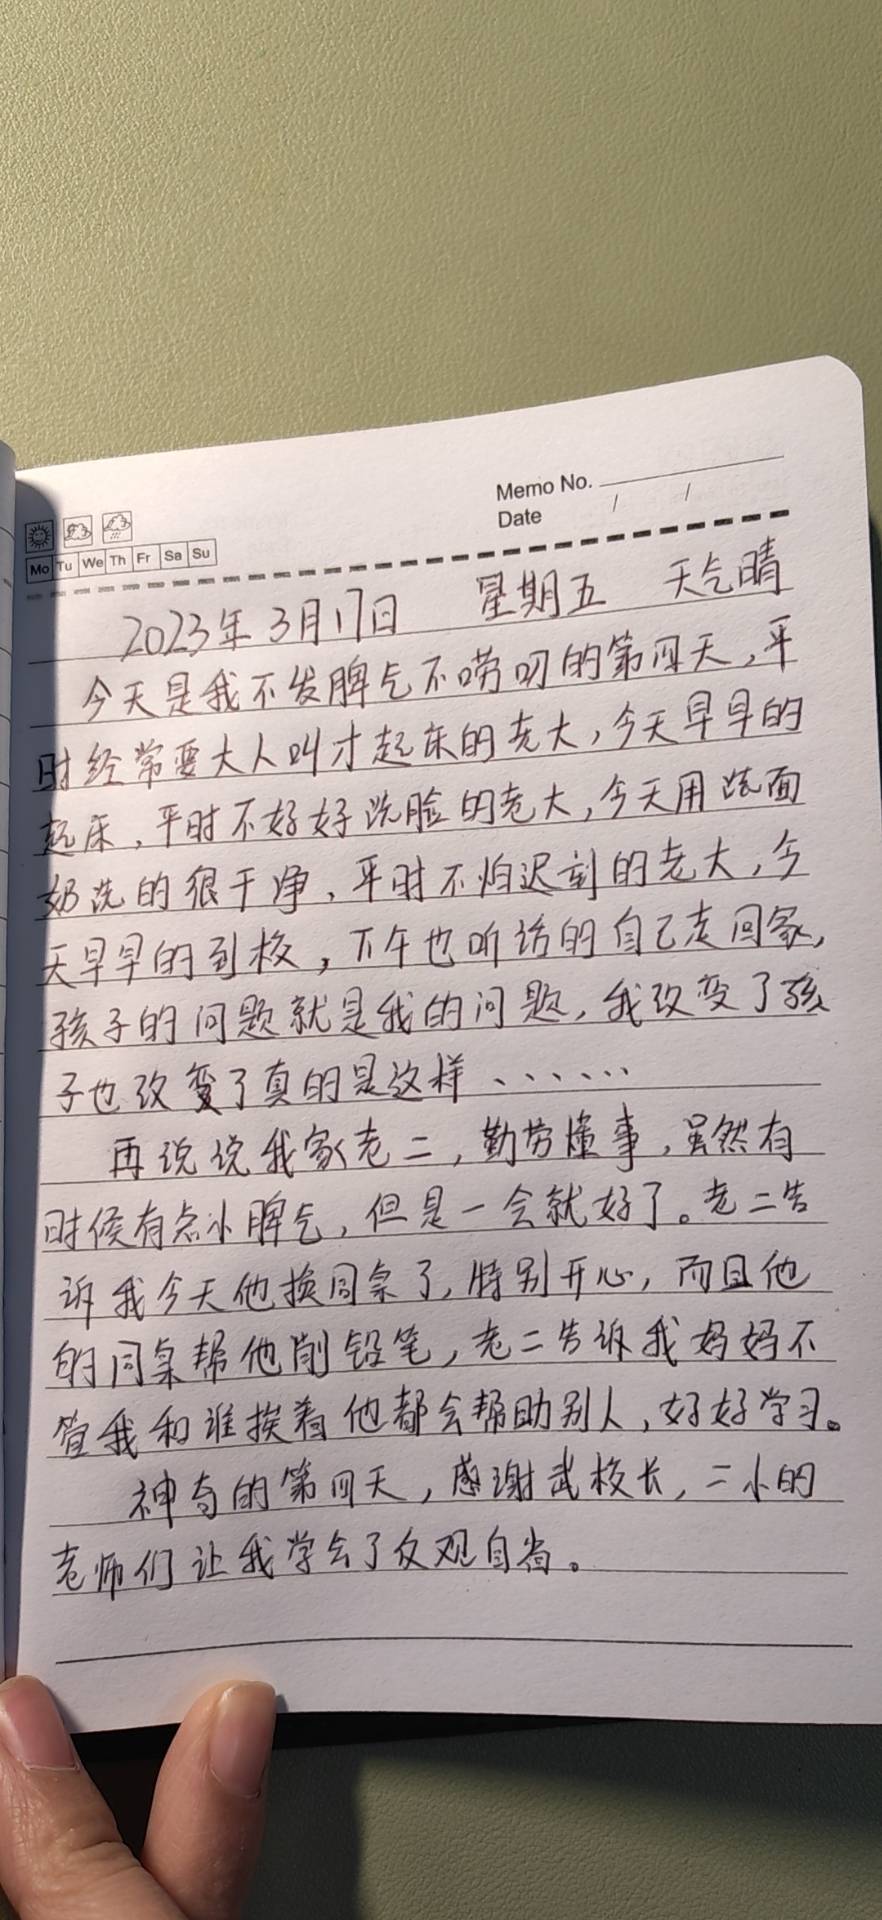 Memo No.
Date / /
Mo Tu We Th Fr Sa Su
2023年3月17日 星期五 天气晴
今天是我不发脾气不唠叨的第四天,平
时经常要大人叫才起床的老大,今天早早的
起床,平时不好好洗脸的老大,今天用洗面
奶洗的很干净,平时不怕迟到的老大,今
天早早的到校,下午也听话的自己走回家,
孩子的问题就是我的问题,我改变了孩
子也改变了真的是这样、、、、、、
再说说我家老二,勤劳懂事,虽然有
时候有点小脾气,但是一会就好了。老二告
诉我今天他换同桌了,特别开心,而且他
的同桌帮他削铅笔,老二告诉我妈妈不
管我和谁挨着他都会帮助别人,好好学习。
神奇的第四天,感谢武校长,二小的
老师们让我学会了反观自省。